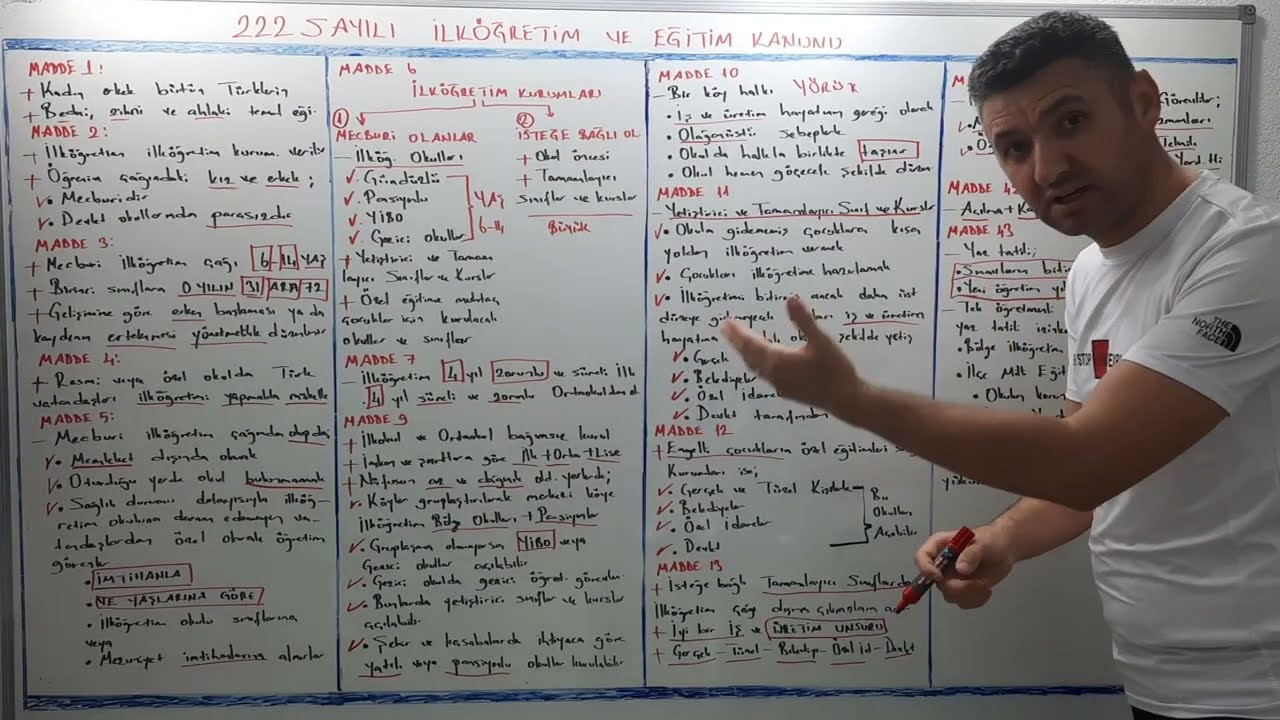 222 SAYILI İLKÖĞRETİM VE EĞİTİM KANUNU
MADDE 1:
+ Kadın erkek bütün Türklerin
+ Bedeni, zihni ve ahlaki temel eği.
MADDE 2:
+ İlköğretim ilköğretim kurum. verilir
+ Öğrenim çağındaki kız ve erkek;
• Mecburidir
• Devlet okullarında parasızdır
MADDE 3:
+ Mecburi ilköğretim çağı 6-14 YAŞ
+ Birinci sınıflara O YILIN 31 ARA 72
+ Gelişimine göre erken başlaması ya da
kaydının ertelenmesi yönetmelikle düzenlenir
MADDE 4:
+ Resmi veya özel okulda Türk
vatandaşları ilköğretimi yapmakla mükelle
MADDE 5:
- Mecburi ilköğretim çağında olup da;
• Memleket dışında olmak
• Oturduğu yerde okul bulunmamak
• Sağlık durumu dolayısıyla ilköğ-
retim okuluna devam edemeyen va-
tandaşlardan özel olarak öğretim
görenler
• İMTİHANLA
• NE YAŞLARINA GÖRE
• İlköğretim okulu sınıflarına
veya
• Mezuniyet imtihanlarına alınırlar
MADDE 6
İLKÖĞRETİM KURUMLARI
1 2
MECBURİ OLANLAR
- İlköğ. Okulları
• Gündüzlü
• Pansiyonlu
• YİBO
• Gezici okullar
YAŞ
6-14
+ Yetiştirici ve Tamam
layıcı Sınıflar ve Kurslar
+ Özel eğitime muhtaç
çocuklar için kurulacak
okullar ve sınıflar
İSTEĞE BAĞLI OL
+ Okul öncesi
+ Tamamlayıcı
sınıflar ve kurslar
Büyük
MADDE 7
- İlköğretim 4 yıl zorunlu ve süreli ilk
4 yıl süreli ve zorunlu Ortaokuldan ol.
MADDE 9
+ İlkokul ve Ortaokul bağımsız kurul
+ İmkan ve şartlara göre İlk+Orta+Lise
+ Nüfusun az ve dağınık old. yerlerde;
• Köyler gruplaştırılarak merkezi köye
İlköğretim Bölge Okulları + Pansiyonlar
• Gruplaşma olmuyorsa YİBO veya
Gezici okullar açılabilir
• Gezici okulda gezici öğret. görevlen.
• Bunlarda yetiştirici sınıflar ve kurslar
açılabilir
• Şehir ve kasabalarda ihtiyaca göre
yatılı veya pansiyonlu okullar kurulabilir
MADDE 10
- Bir köy halkı YÖRÜK
• İş ve üretim hayatının gereği olarak
• Olağanüstü sebeplerle
• Okul da halkla birlikte taşınır
• Okul hemen göçecek şekilde düzen.
MADDE 11
- Yetiştirici ve Tamamlayıcı Sınıf ve Kurslar
• Okula gidememiş çocuklara kısa
yoldan ilköğretim vermek
• Çocukları ilköğretime hazırlamak
• İlköğretimi bitirmiş ancak daha üst
düzeye iş ve üretim
hayatına şekilde yetiş
• Gerçek
• Belediyeler
• Özel idare
• Devlet tarafından
MADDE 12
+ Engelli çocukların özel eğitimleri
Kurumları ise;
• Gerçek ve Tüzel Kişiler
• Belediyeler
• Özel İdareler
• Devlet
Bu
Okulları
Açabilir
MADDE 13
+ İsteğe bağlı Tamamlayıcı Sınıflarda
İlköğretim çağı dışına çıkmışlara
+ İyi bir İŞ ve ÜRETİM UNSURU
+ Gerçek - Tüzel - Belediye - Özel id - Devlet
Görevliler;
Yard. Hi
MADDE 43
- Yaz tatili;
• Sınavların
• Yeni öğretim
- Tek öğretmenli
yaz tatili
• Bölge ilköğretim
• İlçe Mdr Eğit
THE
NORTH
FACE